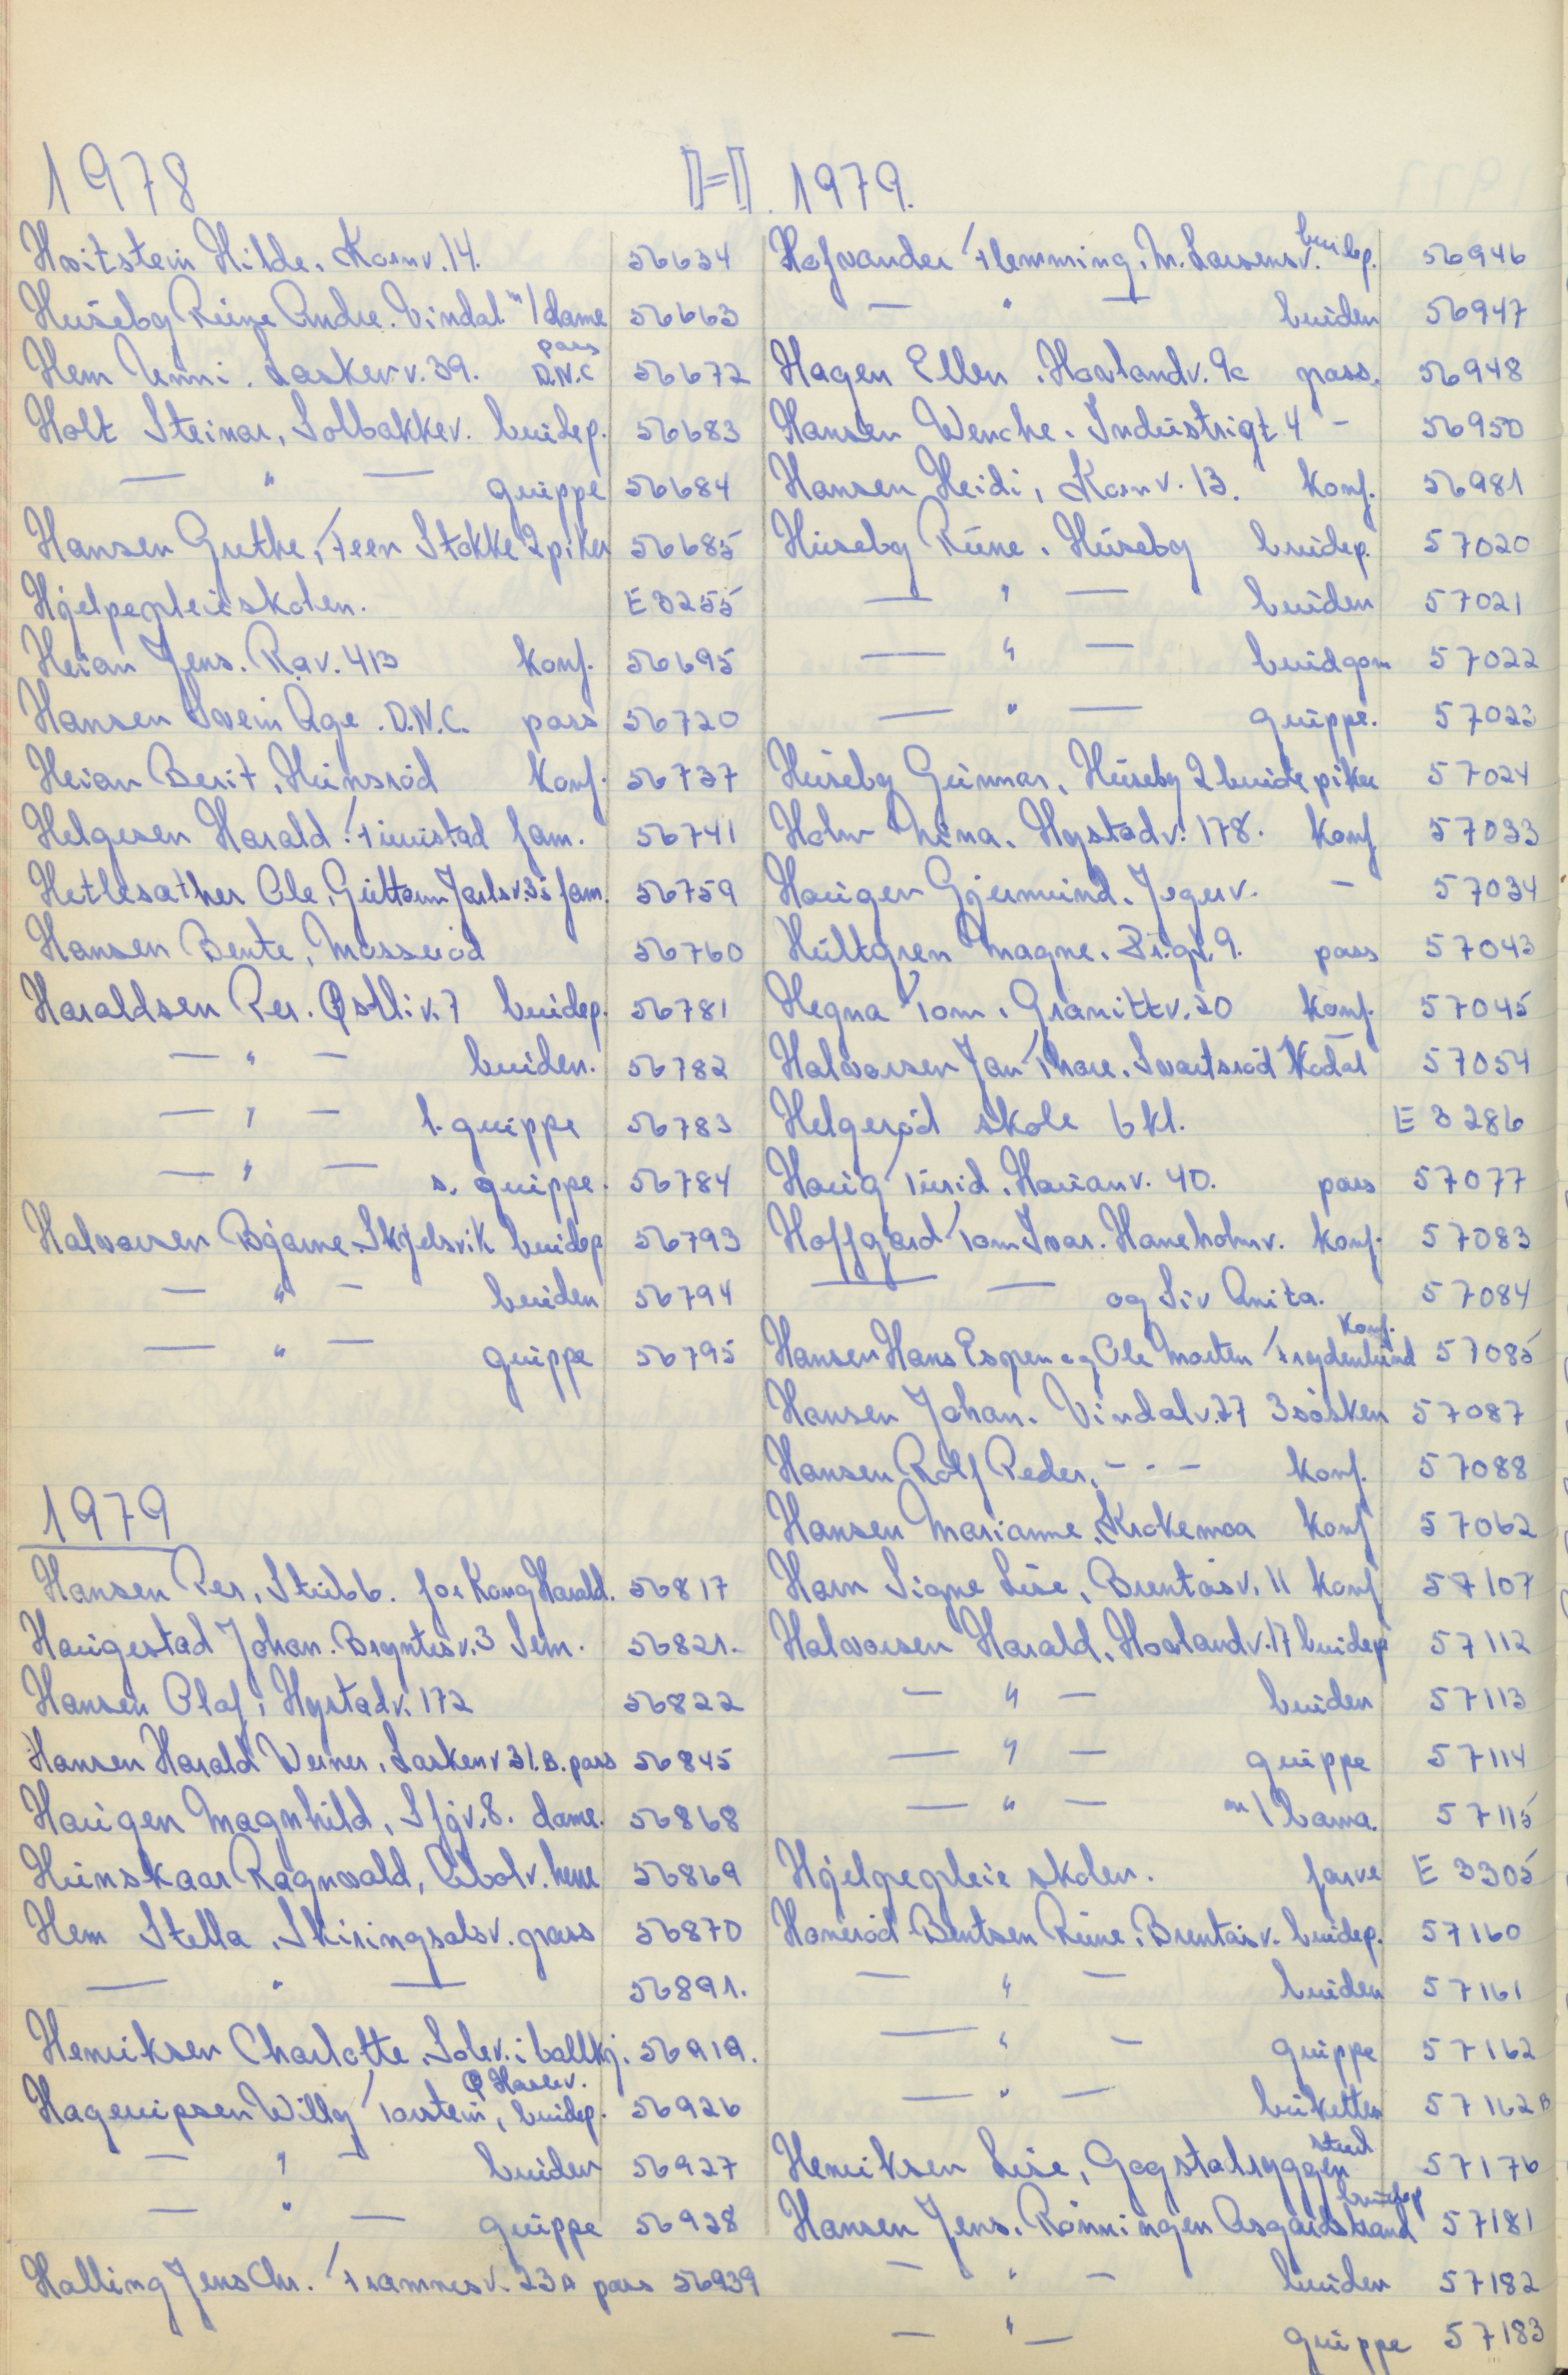 1978
Hvitstein Hilde. Kornv. 14. 56634
Huseby Rune Andre. Vindal. m/dame 56663
pass
Hem Unni. Laskenv. 39. D.N.C 56672
Holt Steinar, Solbakkev. brudep. 56683
— " — gruppe 56684
Hansen Grethe, Feen Stokke 2 piker 56685
Hjelpepleieskolen. E 3255
Heian Jens. Rav. 413 konf. 56695
Hansen Svein Åge. D.N.C. pass 56720
Heian Berit, Hunsrød konf. 56737
Helgesen Harald. Furustad fam. 56741
Hetlesæther Ole, Guttorm Jarlsv. 35 fam. 56759
Hansen Bente, Mosserød 56760
Haraldsen Per. Østliv. 7 brudep. 56781
— " — bruden. 56782
— " — l. gruppe 56783
— " — s. gruppe. 56784
Halvorsen Bjarne. Skjelsvik brudep 56793
— " — bruden 56794
— " — gruppe 56795
1979
Hansen Per, Stub b. for Kong Harald. 56817
Haugestad Johan. Bryntesv. 3 Sem. 56821.
Hansen Olaf, Hystadv. 172 56822
Hansen Harald Werner, Laskenv 31.B. pass 56845
Haugen Magnhild, Sfjv. 8. dame. 56868
Hunskaar Ragnvald, Ebolv. herre 56869
Hem Stella, Skiringsalsv. pass 56870
— " — 56891.
Henriksen Charlotte. Solev. i ballkj. 56919.
Ø Halsv.
Hagerupsen Willy Torstein, brudep. 56926
— " — bruden 56927
— " — gruppe 56928
Halling Jens Chr. Framnesv. 23A pass 56939
H. 1979.
Hofvander Flemming, M. Larsensv. brudep. 56946
— " — bruden 56947
Hagen Ellen. Hovlandv. 9c pass. 56948
Hansen Wenche. Industrigt 4 - 56950
Hansen Heidi, Kornv. 13. konf. 56981
Huseby Rune. Huseby brudep. 57020
— " — bruden 57021
— " — brudgom 57022
— " — gruppe. 57023
Huseby Gunnar, Huseby 2 brudepiker 57024
Holm Nina. Hystadv. 178. konf 57033
Haugen Gjermund. Jegerv. - 57034
Hultgren Magne. Br.gt. 9. pass 57043
Hegna Tom. Granittv. 20 konf. 57045
Halvorsen Jan Thore. Svartsrød Kodal 57054
Helgerød skole 6 kl. E 3286
Haug Turid. Havanv. 40. pass 57077
Hoffgård Tom Ivar. Haneholmv. konf. 57083
— — og Siv Anita. 57084
konf.
Hansen Hans Espen og Ole Morten Frydenlund 57085
Hansen Johan. Vindalv. 77 3 søsken 57087
Hansen Rolf Peder. - - - konf. 57088
Hansen Marianne, Krokemoa konf 57062
Horn Signe Lise, Brentåsv. 11 konf 57107
Halvorsen Harald, Hovlandv. 17 brudep 57112
— " — bruden 57113
— " — gruppe 57114
— " — m/barna. 57115
Hjelpepleie skolen. farve E 3305
Honerød Bentsen Rune, Brentåsv. brudep. 57160
— " — bruden 57161
— " — gruppe 57162
— " — buketten 57162 B
stud
Henriksen Lise, Gogstadryggen 57176
brudep
Hansen Jens. Rønningen Åsgårdstrand 57181
— " — bruden 57182
— " — gruppe 57183